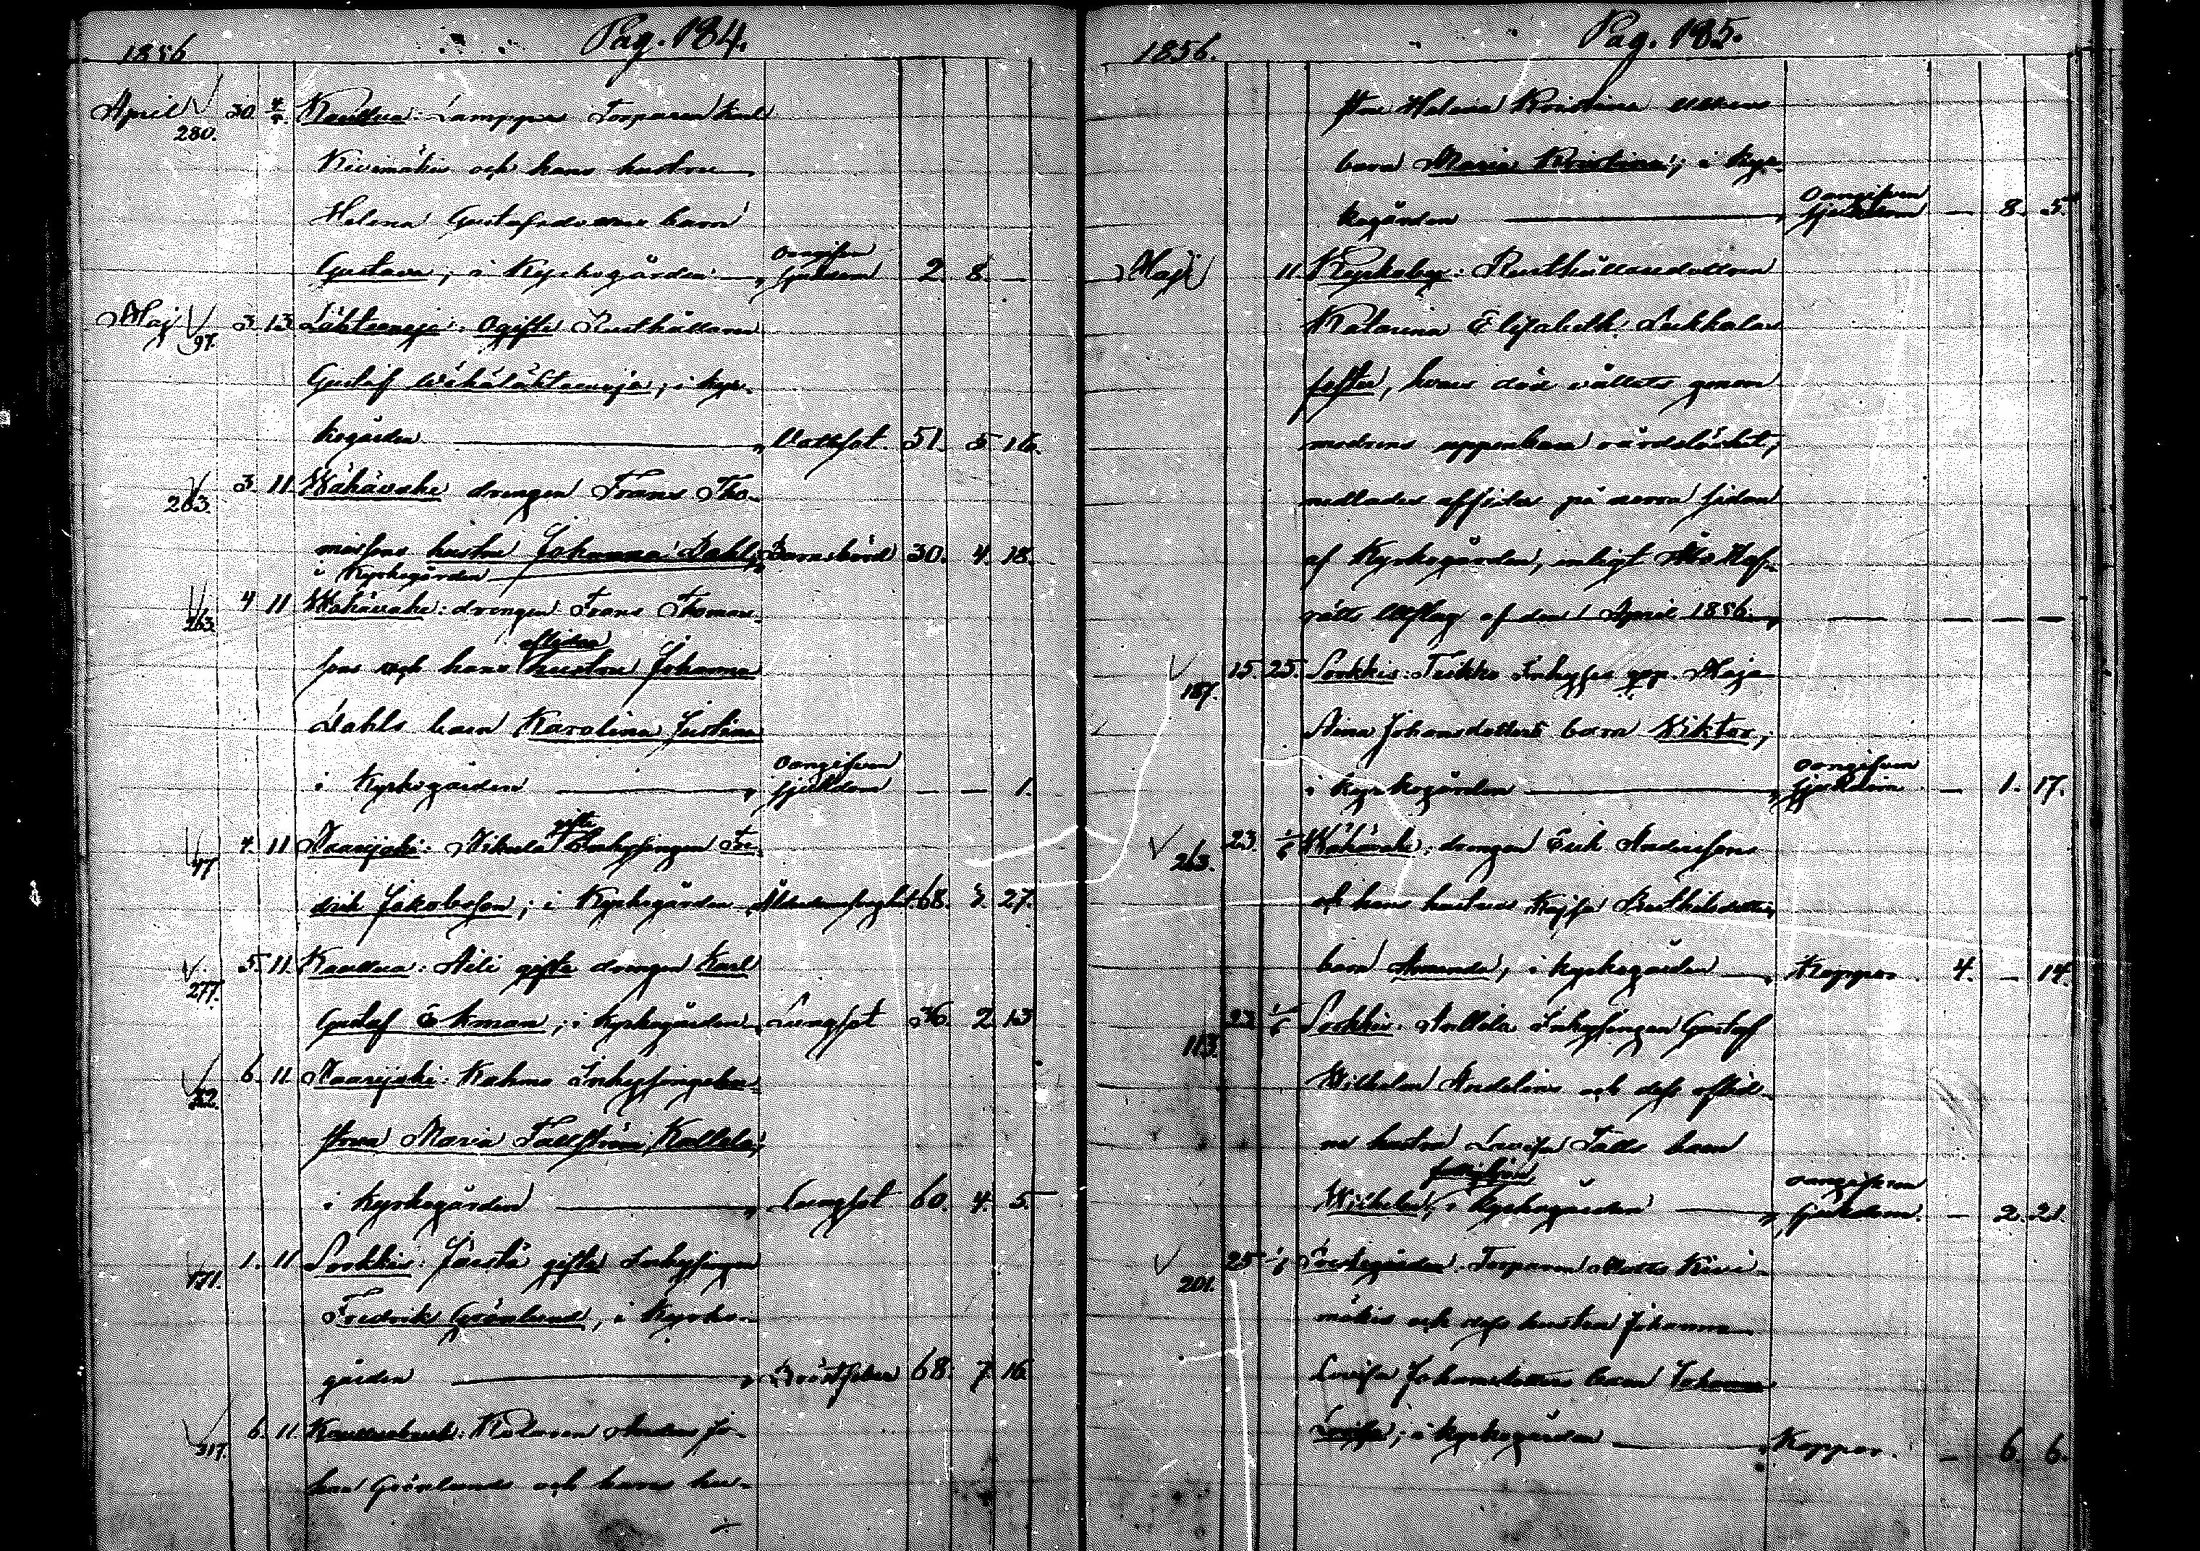 Pag. 184.
1856
April 280. 30. 4/5. Kauttua: Lamppi Torparen Karl
Kivimäkis och hans hustru
Helena Gustafsdotters barn
Gustava; i Kyrkogården — oangifven sjukdom 2. 8. —
Maj 97. 3. 13. Lähteenoja: Ogifte Rusthållaren
Gustaf Wähälähteenoja; i kyr-
kogården — Vattsot 51. 5. 16.
263. 3. 11. Wähävahe drengen Frans Tho-
massons hustru Johanna Dahl,
i Kyrkogården — Barnsbörd 30. 4. 18.
263. 4 11 Wähävahe: drengen Frans Thomas-
sons och hans aflidna hustru Johanna
Dahls barn Karolina Justina
i Kyrkogården — oangifven sjukdom — — 1.
47 4. 11 Naarijoki: Nikula gifte Inhysingen Fre-
drik Jakobsson; i Kyrkogården — Ålderdomssvaghet 68. 3. 27.
277. 5. 11. Kauttua: gifte drengen Karl
Gustaf Ekman; i kyrkogården Lungsot 36. 2. 13
22. 6. 11. Naarijoki: Inhysingehu-
strun Maria Fallström Kallela;
i kyrkogården — Lungsot 60. 4. 5.
171. 1. 11. Sorkkis: gifte Inhysingen
Fredrik Grönlund, i Kyrko-
gården — Bröstfeber 68. 7. 16.
317. 6. 11. Kauttuabruk: Kolaren Anders Jo-
han Grönlunds och hans hu-
Pag. 185.
1856.
strus Helena Kristina
barn Maria Kristina; i kyr-
kogården — oangifven sjukdom — 8. 5.
Maji 11. Kyrkoby: Rusthållaredottern
Katarina Elisabeth
foster, hvars död vållats genom
modrens uppenbara vårdslöshet,
nedlades afsides på norra sidan
af Kyrkogården, enligt Åbo Hof-
rätts Utslag af den 1 April 1856. — — — —
187. 15. 25. Sorkkis: Inhyses Maja
Stina Johansdotters barn Wiktor;
i kyrkogården — oangifven sjukdom — 1. 17.
263. 23. 1/6 Wähävahe: drengen Erik Anderssons
och hans hustrus Kajsa
barn Amanda; i kyrkogården — Koppor 4. — 14.
113. 23. 1/6 Sorkkis: Anttila Inhysingen Gustaf
Wilhelm Andelins och dess aflid-
na hustru Lovisa Falls barn
Wilhelm, i Kyrkogården — oangifven sjukdom. — 2. 21.
201. 25 1/6 Torparen Matts Kivi-
mäkis och dess hustru Johanna
Lovisa Johansdotters barn Johanna
Lovisa; i kyrkogården — Koppor. — 6. 6.